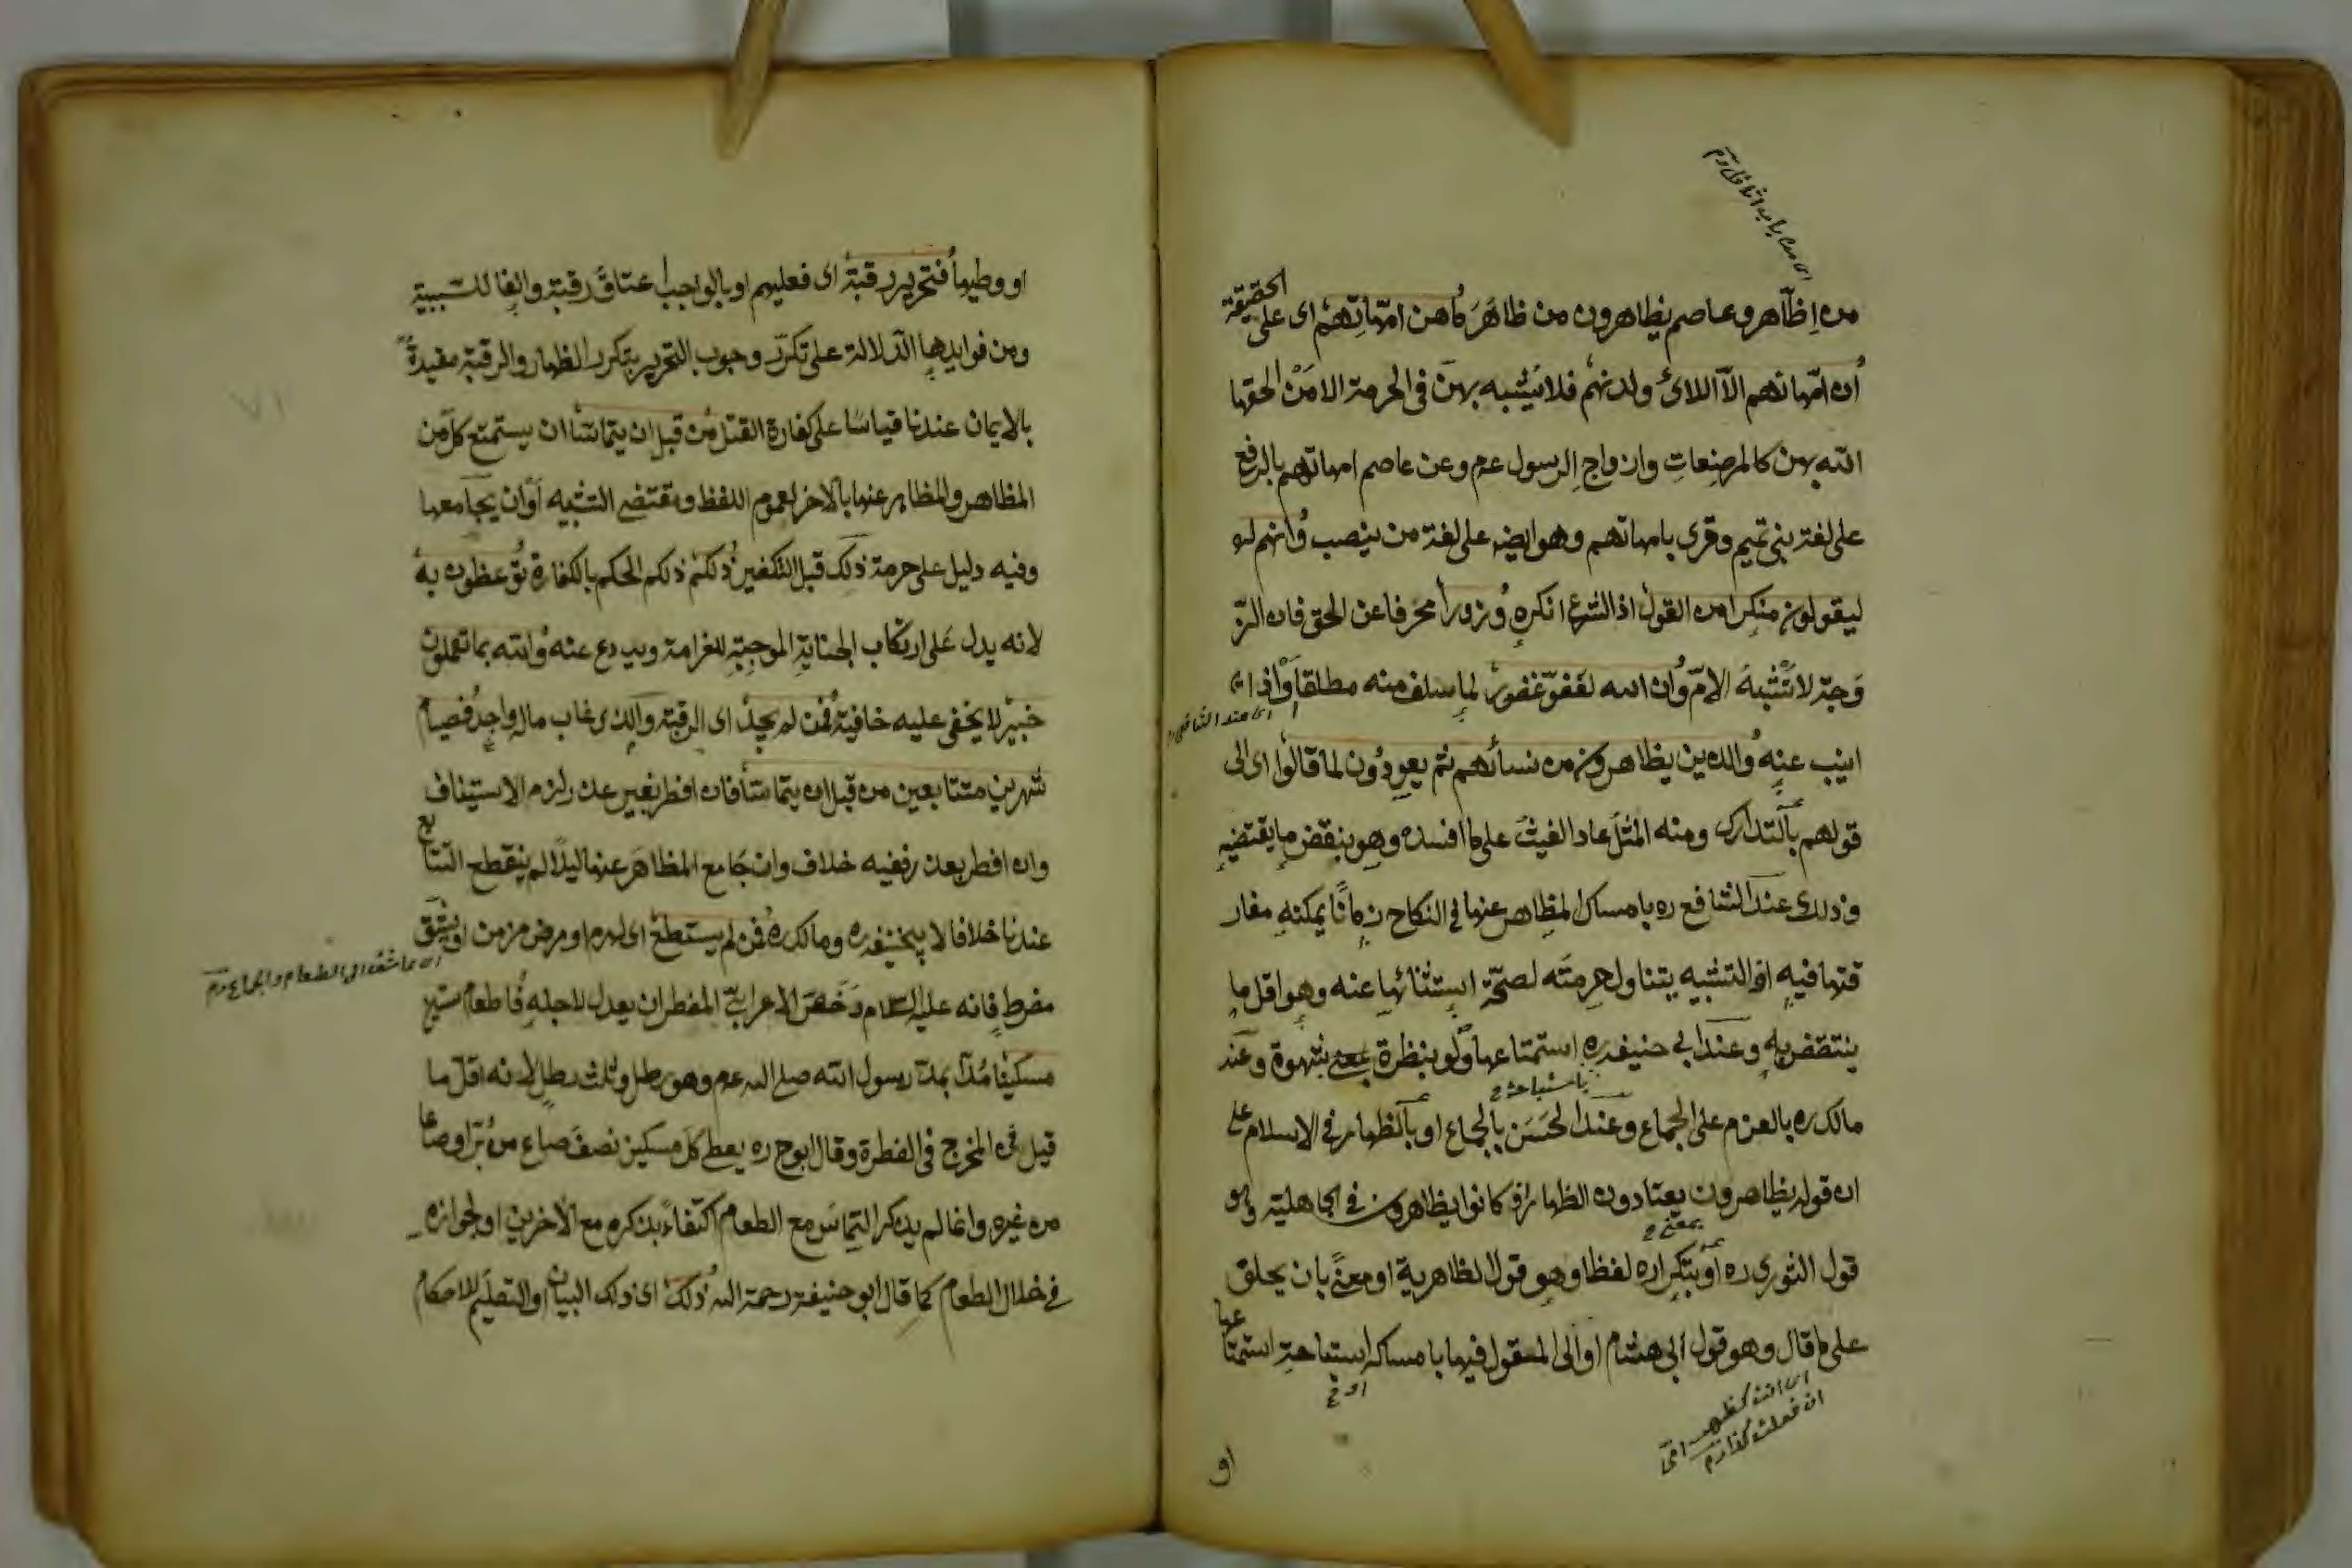 اى من باب افاعل م
من اِظّاهر وعاصم يظاهرون من ظاهَرَ مُاهن امّهاتِهم اى على الحقيقة
اُن امّهاتهم الّا اللائ ولدنهم فلا يُشبه بهنّ فى الحرمة الا مَنْ الحقها
الله بهن كالمرضِعاتِ وازواجِ الرسول عم وعن عاصم امهاتهم بالرفع
على لغة بنى تميم وقرى بامهاتهم وهو ايضه على لغة من ينصب وُانهم
ليقولون منكرا من القول اذ الشرع انكره وُزورا محرفا عن الحق فان الزّ
وَجة لا تُشْبهُ الامّ وُان الله لعفوّ غفور لما سلف منه مطلقا وْاذا
اى عند الشافعى
انيب عنه وُالذين يظاهرون من نسائهم ثم يعودُون لما قالوا اى الى
قولهم بالتدارك ومنه المثل عاد الغيثُ على ما افسد وهو بنقض ما يقتضيه
وذلك عند الشافع ره بامساك المظاهر عنها فى النكاح زمانًا يمكنه مفار
قتها فيه اذ التشبيه يتناول حرمتَه لصحّة استثنائها عنه وهو اقل ما
ينتقض به وعند ابى حنيفه ره استمتاعها ولو بنظرة بشهوة وعند
باستباحة
مالك ره بالعزم على الجماع وعند الحَسَن بالجماع او بالظهار فى الاسلام على
ان قوله يظاهرون يعتادون الظهار اذ كانوا يظاهرون فى الجاهلية وهو
بمعنى
قول الثورى ره او بتكراره لفظا وهو قول الظاهرية او معنًى بان يحلق
على ما قال وهو قول ابى هشام او الى المقول فيها بامساكه استباحة استمتاعها
اى انت كظهر امى
ان فعلت كذا م
او
او وطيها فُتحرير رقبة اى فعليهم او بالواجب اعتاق رقبة والفا للسّببية
ومن فوايدها الدّلالة على تكرّر وجوب التحرير بتكرر الظهار والرقبة مقيدةً
بالايمان عندنا قياسًا على كفارة القتل مُن قبل ان يتماسّا ان يستمتع كل من
المظاهر والمظاهر عنها بالاخر لعموم اللفظ ومقتضى التشبيه اوْان يجامعها
وفيه دليل على حرمة ذلك قبل التكفير ذُلكم ذلكم الحكم بالكفارة تُوعظون به
لانه يدل على ارتكاب الجناية الموجِبةِ للغرامة ويردع عنه وُالله بما تعملون
خبير لا يخفى عليه خافية فُمن لم يجد اى الرقبة والذى غاب ماله واجد فُصيام
شهرين متتابعين من قبل ان يتماسّا فان افطر بغير عذر لزم الاستيناف
وان افطر بعذر ففيه خلاف وان جَامع المظاهَر عنها ليلًا لم ينقطع التتابع
عندنا خلافا لابيحنيفه ره ومالك ره فُمن لم يستطع اى لهرم او مرض مزمن او شَبَق
اى عاشقه الى الطعام والجماع م
مفرطٍ فانه عليه السلام رَخّصَ الاعرابىّ المفطر ان يعدل لاجله فُاطعام ستين
مسكينًا مُدّا بمدّ رسول الله صلى الله عم وهو رطل وثلث رطل لانه اقل ما
قيل فى المخرج فى الفطرة وقال ابو ح ره يعطى كل مسكين نصف صاع من بُرّ او صاعا
من غيره وانما لم يذكر التماسّ مع الطعام اكتفاءً بذكره مع الآخرين او لجوازه
فى خلال الطعام كما قال ابو حنيفة رحمة الله ذُلك اى ذلك البيان او التعليم للاحكام